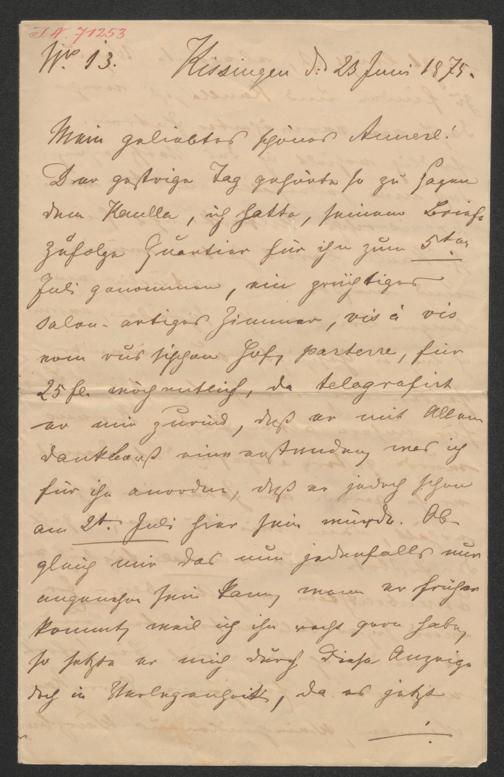 I.N. 71253
No. 13.
Kissingen d: 23 Juni 1875.
Mein geliebtes schönes Annerl!
Der gestrige Tag gehörte so zu sagen
dem Kaulla, ich hatte, seinem Brief
zufolge Quartier für ihn zum 5ten
Juli genommen, ein prächtiges
salon-artiges Zimmer, vis à vis
vom russischen Hof, parterre, für
25 fl. wöchentlich, da telegrafirt
er mir zurück, daß er mit Allem
dankbarst einverstanden, was ich
für ihn anordne, daß er jedoch schon
am 2t. Juli hier sein würde. Ob-
gleich mir das nun jedenfalls nur
angenehm sein kann, wenn er früher
kommt, weil ich ihn recht gern habe,
so setzte er mich durch diese Anzeige
doch in Verlegenheit, da es jetzt